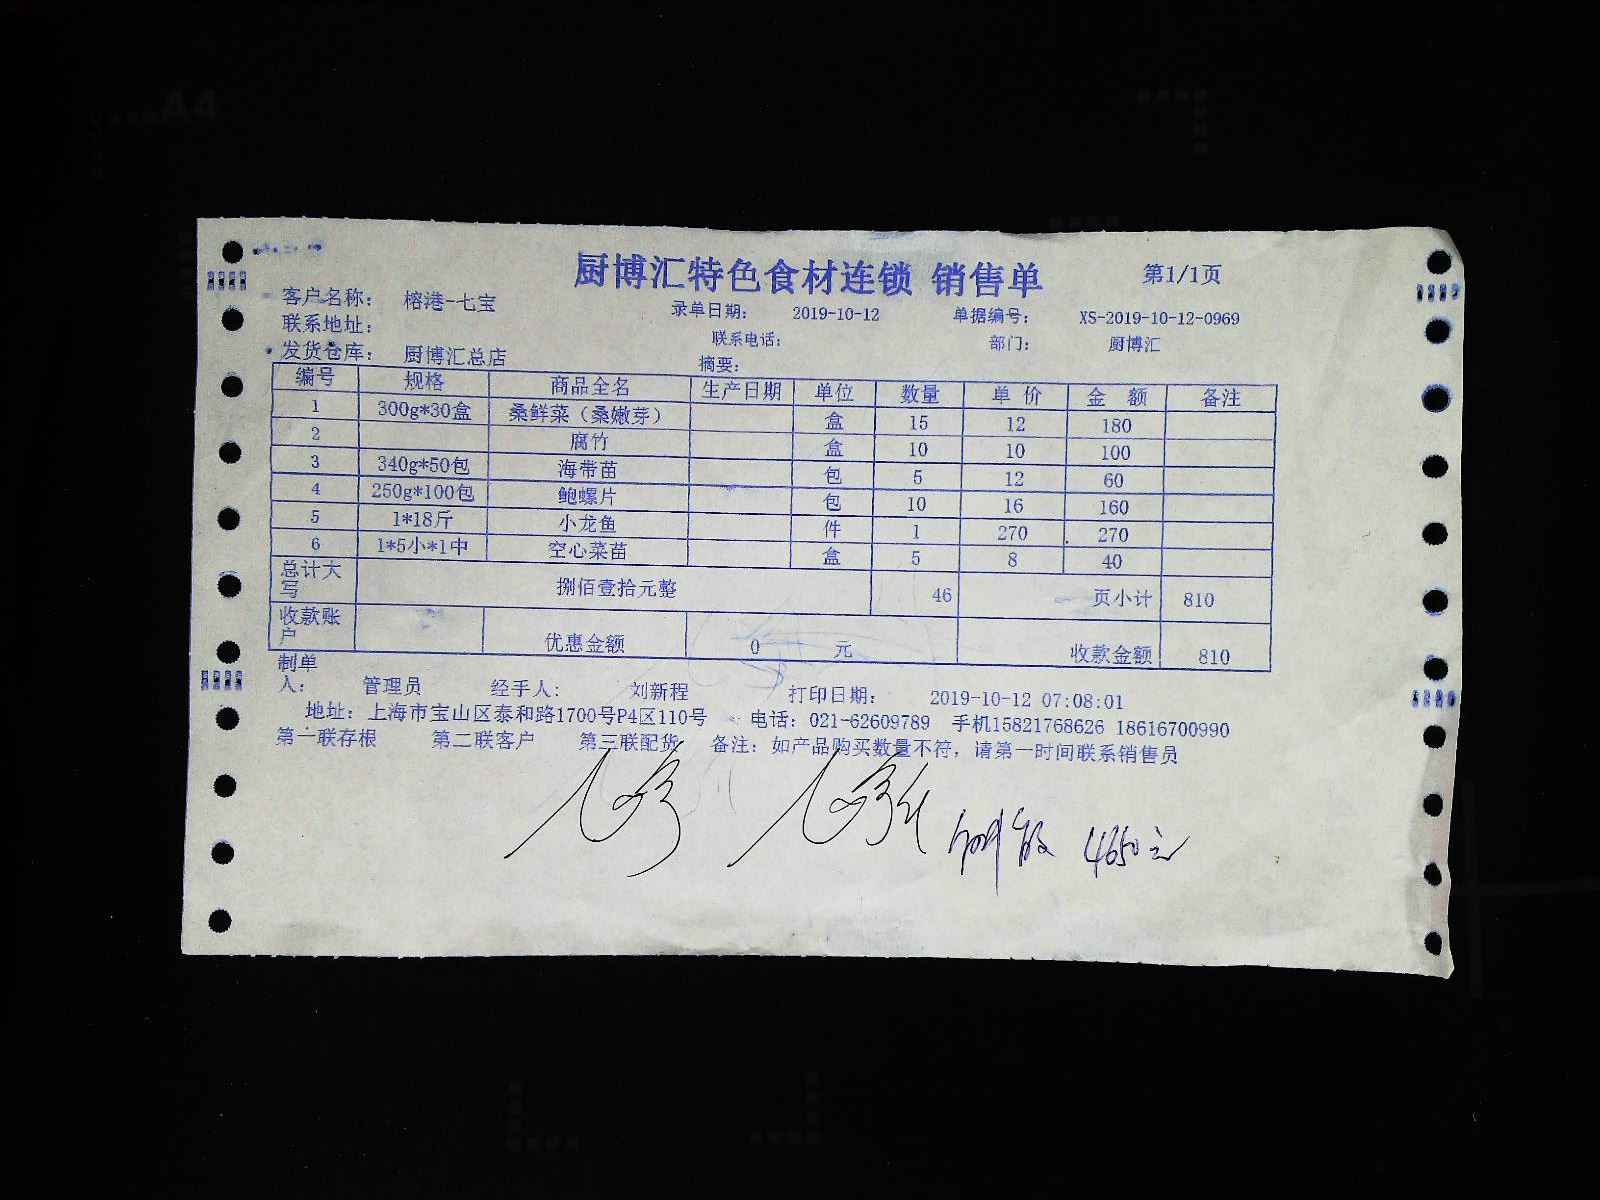 厨博汇特色食材连锁 销售单 第1/1页
客户名称: 榕港-七宝 录单日期: 2019-10-12 单据编号: XS-2019-10-12-0969
联系地址: 联系电话: 部门: 厨博汇
发货仓库: 厨博汇总店 摘要:
编号 规格 商品全名 生产日期 单位 数量 单价 金额 备注
1 300g*30盒 桑鲜菜（桑嫩芽） 盒 15 12 180
2 腐竹 盒 10 10 100
3 340g*50包 海带苗 包 5 12 60
4 250g*100包 鲍螺片 包 10 16 160
5 1*18斤 小龙鱼 件 1 270 270
6 1*5小*1中 空心菜苗 盒 5 8 40
总计大写 捌佰壹拾元整 46 页小计 810
收款账户 优惠金额 0 元 收款金额 810
制单人: 管理员 经手人: 刘新程 打印日期: 2019-10-12 07:08:01
地址: 上海市宝山区泰和路1700号P4区110号 电话: 021-62609789 手机15821768626 18616700990
第一联存根 第二联客户 第三联配货 备注: 如产品购买数量不符, 请第一时间联系销售员
4650元